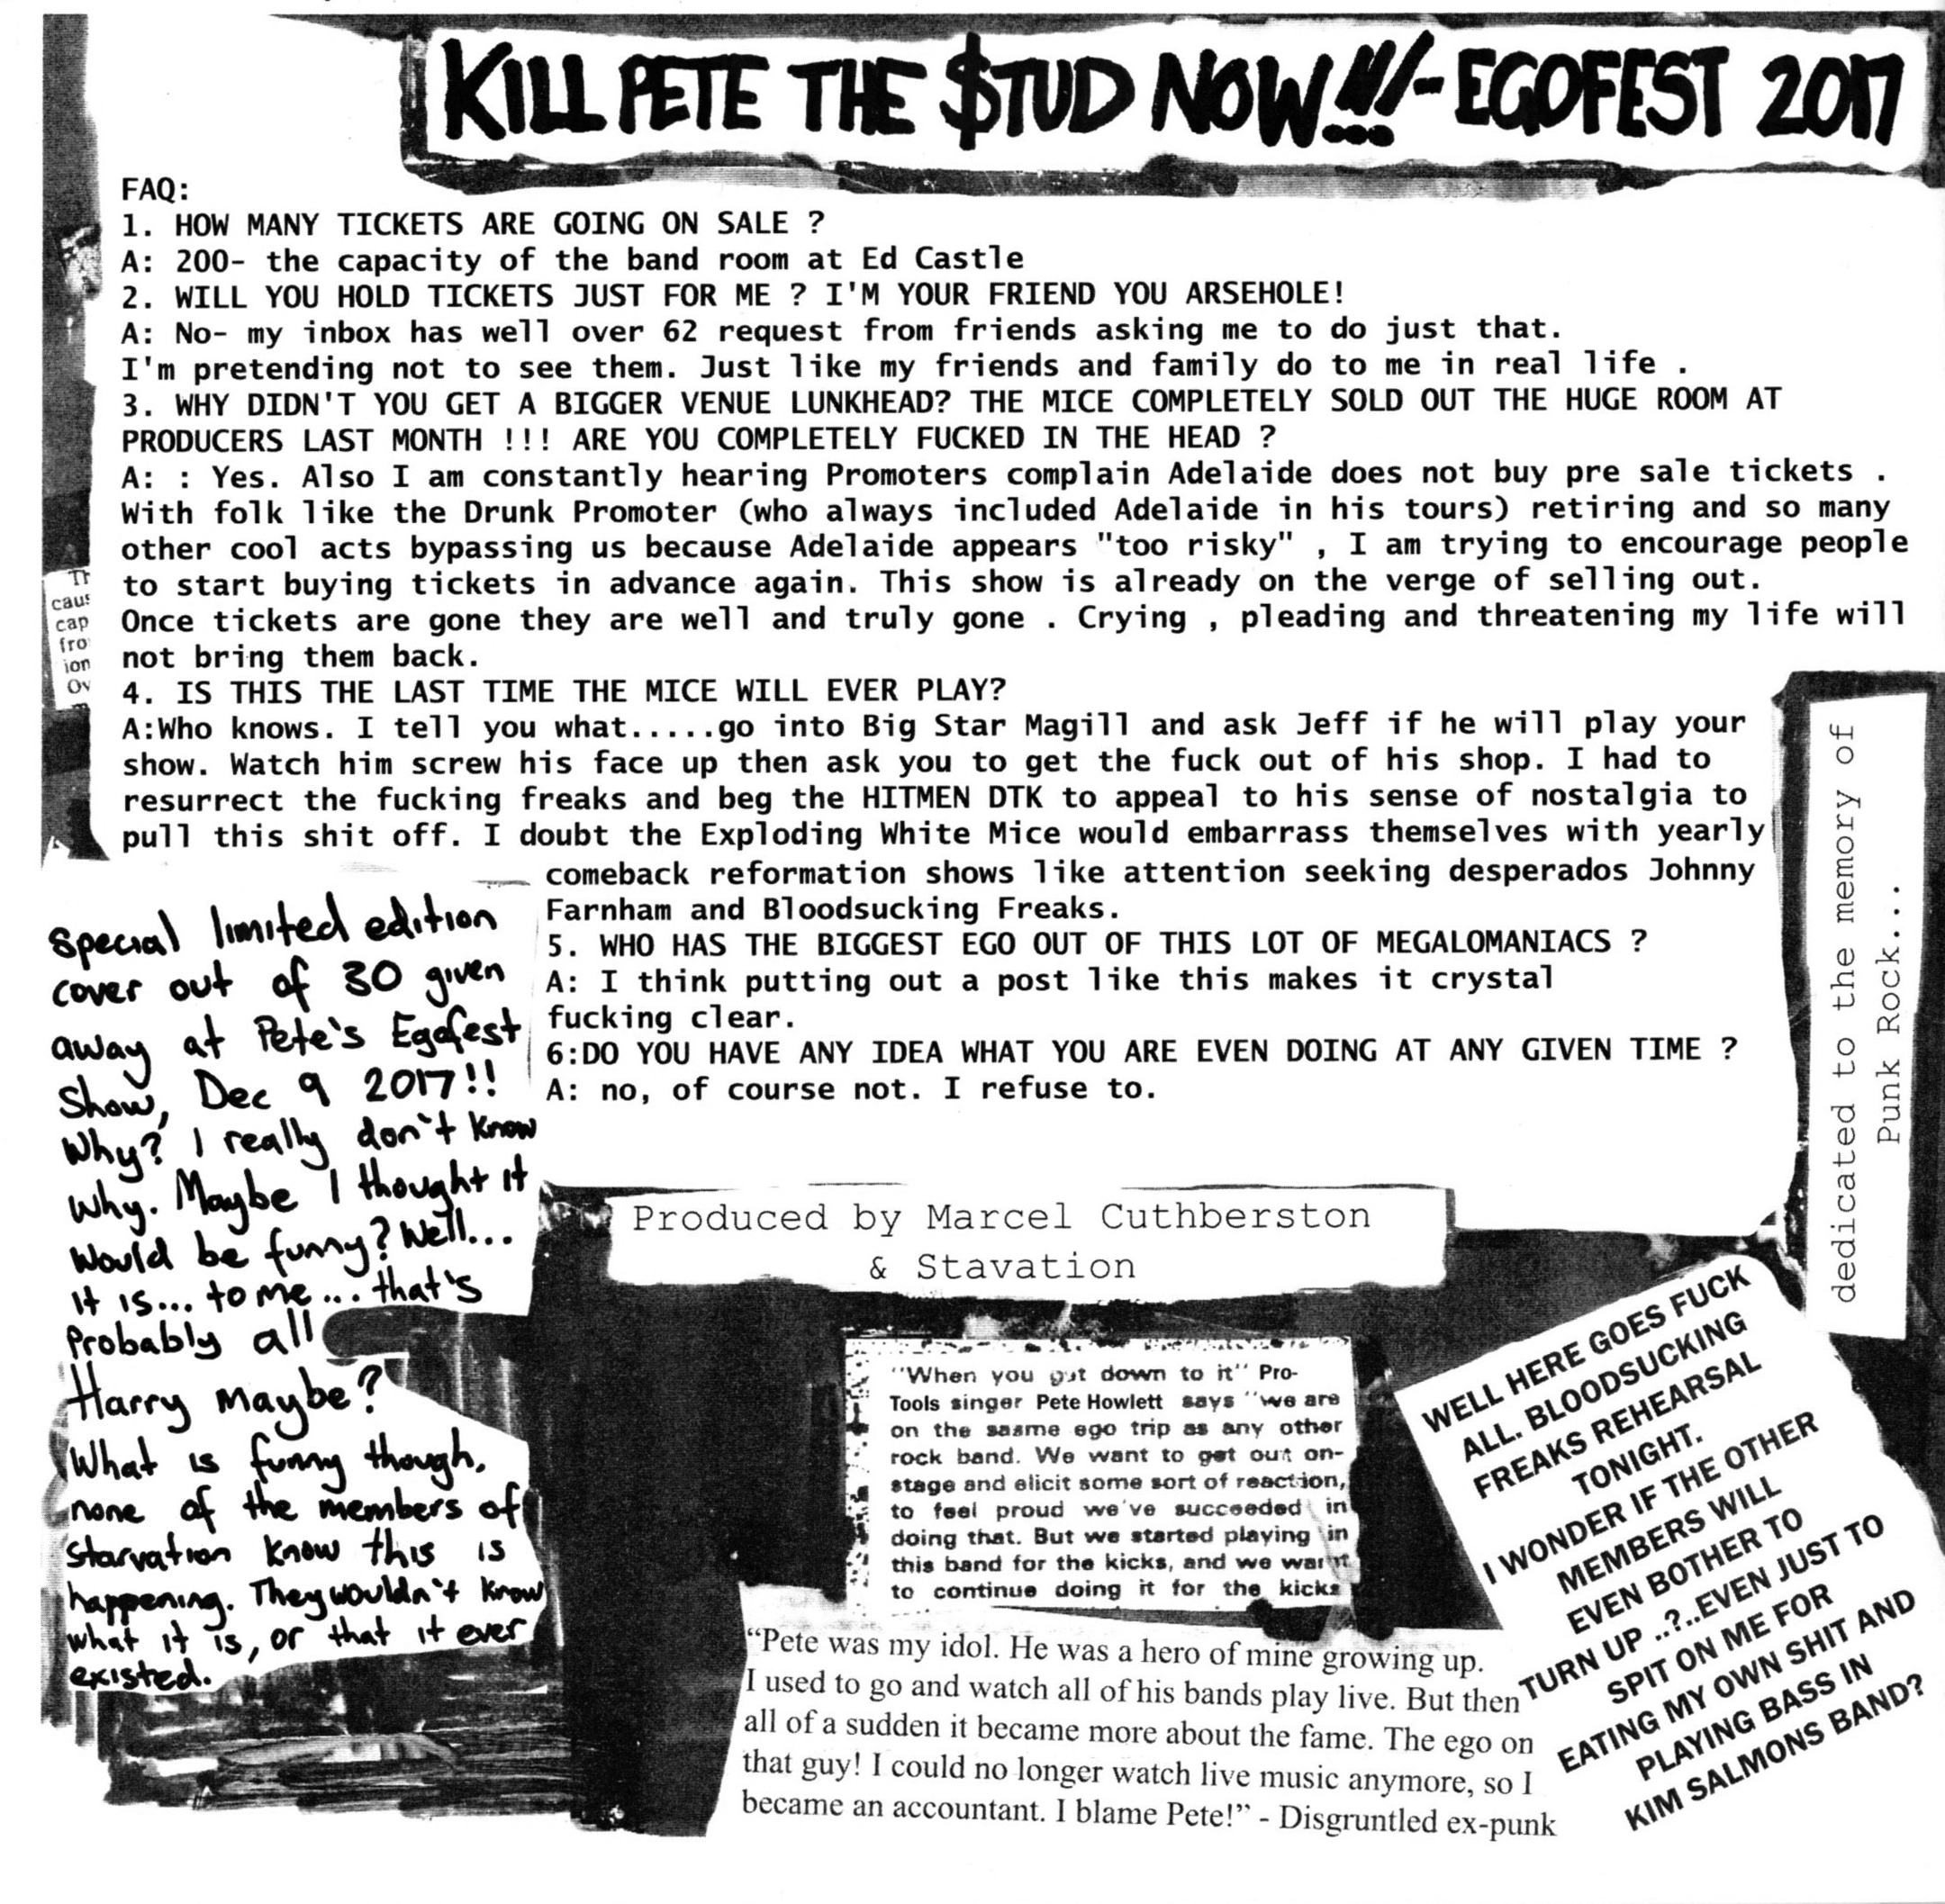 KILL PETE THE $TUD NOW!!!/- EGOFEST 2017
FAQ:
1. HOW MANY TICKETS ARE GOING ON SALE ?
A: 200- the capacity of the band room at Ed Castle
2. WILL YOU HOLD TICKETS JUST FOR ME ? I'M YOUR FRIEND YOU ARSEHOLE!
A: No- my inbox has well over 62 request from friends asking me to do just that.
I'm pretending not to see them. Just like my friends and family do to me in real life .
3. WHY DIDN'T YOU GET A BIGGER VENUE LUNKHEAD? THE MICE COMPLETELY SOLD OUT THE HUGE ROOM AT
PRODUCERS LAST MONTH !!! ARE YOU COMPLETELY FUCKED IN THE HEAD ?
A: : Yes. Also I am constantly hearing Promoters complain Adelaide does not buy pre sale tickets .
With folk like the Drunk Promoter (who always included Adelaide in his tours) retiring and so many
other cool acts bypassing us because Adelaide appears "too risky" , I am trying to encourage people
to start buying tickets in advance again. This show is already on the verge of selling out.
Once tickets are gone they are well and truly gone . Crying , pleading and threatening my life will
not bring them back.
4. IS THIS THE LAST TIME THE MICE WILL EVER PLAY?
A:Who knows. I tell you what.....go into Big Star Magill and ask Jeff if he will play your
show. Watch him screw his face up then ask you to get the fuck out of his shop. I had to
resurrect the fucking freaks and beg the HITMEN DTK to appeal to his sense of nostalgia to
pull this shit off. I doubt the Exploding White Mice would embarrass themselves with yearly
comeback reformation shows like attention seeking desperados Johnny
Farnham and Bloodsucking Freaks.
5. WHO HAS THE BIGGEST EGO OUT OF THIS LOT OF MEGALOMANIACS ?
A: I think putting out a post like this makes it crystal
fucking clear.
6:DO YOU HAVE ANY IDEA WHAT YOU ARE EVEN DOING AT ANY GIVEN TIME ?
A: no, of course not. I refuse to.
Th
caus
cap
fro
ion
Ov
dedicated to the memory of
Punk Rock...
Special limited edition
cover out of 30 given
away at Pete's Egofest
Show, Dec 9 2017!!
Why? I really don't know
why. Maybe I thought it
would be funny? Well...
It is... to me... that's
Probably all
Harry maybe?
What is funny though,
none of the members of
Starvation know this is
happening. They wouldn't know
what it is, or that it ever
existed.
Produced by Marcel Cuthberston
& Stavation
"When you gut down to it" Pro-
Tools singer Pete Howlett says "we are
on the sasme ego trip as any other
rock band. We want to get out on-
stage and elicit some sort of reaction,
to feel proud we've succeeded in
doing that. But we started playing in
this band for the kicks, and we want
to continue doing it for the kicks
WELL HERE GOES FUCK
ALL. BLOODSUCKING
FREAKS REHEARSAL
TONIGHT.
I WONDER IF THE OTHER
MEMBERS WILL
EVEN BOTHER TO
TURN UP ..?..EVEN JUST TO
SPIT ON ME FOR
EATING MY OWN SHIT AND
PLAYING BASS IN
KIM SALMONS BAND?
"Pete was my idol. He was a hero of mine growing up.
I used to go and watch all of his bands play live. But then
all of a sudden it became more about the fame. The ego on
that guy! I could no longer watch live music anymore, so I
became an accountant. I blame Pete!" - Disgruntled ex-punk